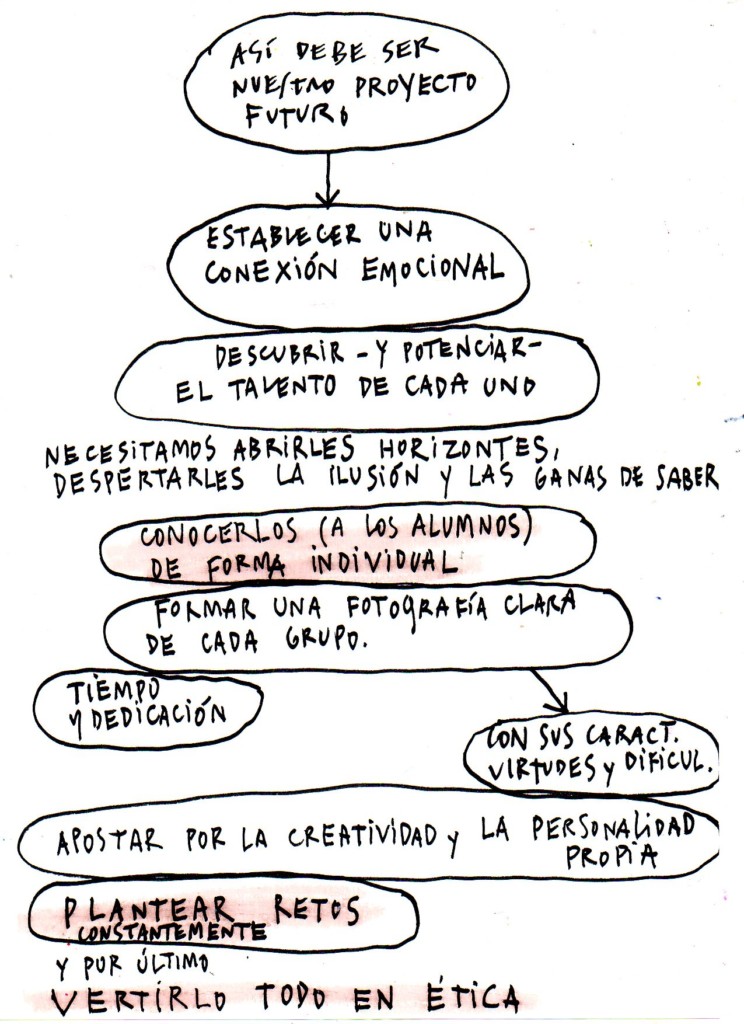 ASÍ DEBE SER
NUESTRO PROYECTO
FUTURO
ESTABLECER UNA
CONEXIÓN EMOCIONAL
DESCUBRIR - Y POTENCIAR -
EL TALENTO DE CADA UNO
NECESITAMOS ABRIRLES HORIZONTES,
DESPERTARLES LA ILUSIÓN Y LAS GANAS DE SABER
CONOCERLOS (A LOS ALUMNOS)
DE FORMA INDIVIDUAL
FORMAR UNA FOTOGRAFÍA CLARA
DE CADA GRUPO.
TIEMPO
Y DEDICACIÓN
CON SUS CARACT.
VIRTUDES y DIFICUL.
APOSTAR POR LA CREATIVIDAD y LA PERSONALIDAD
PROPIA
PLANTEAR RETOS
CONSTANTEMENTE
Y POR ÚLTIMO
VERTIRLO TODO EN ÉTICA